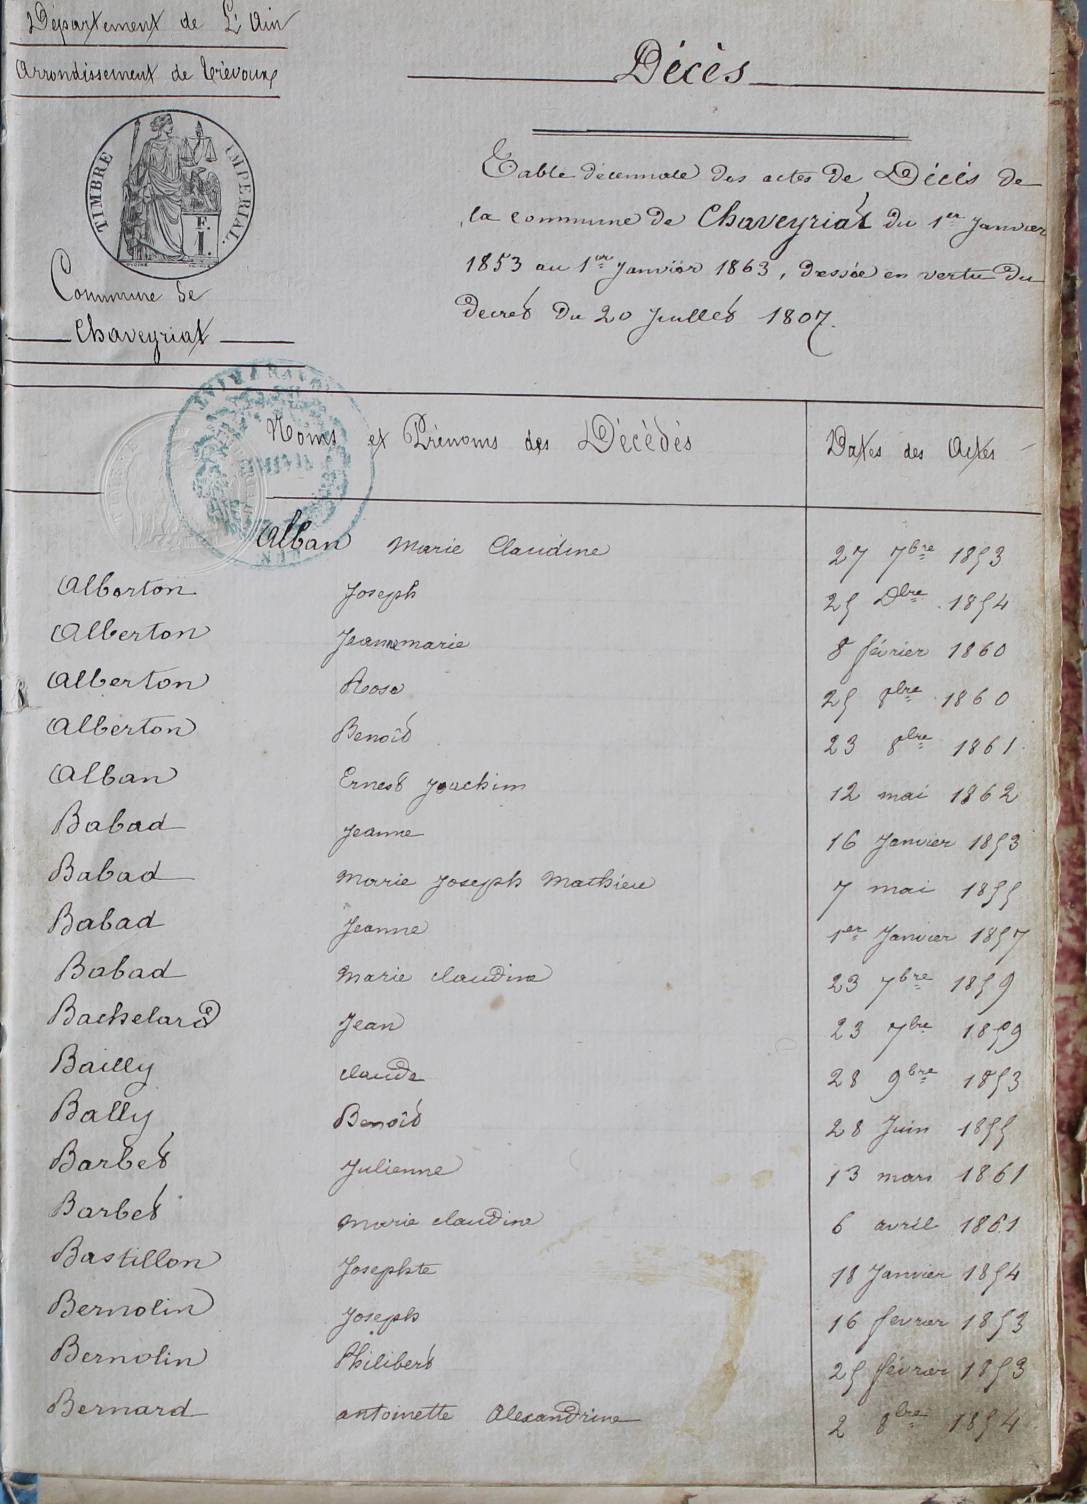 Département de L'Ain
Arrondissement de Trévoux
TIMBRE IMPERIAL.
E.
I.
Commune de
Chaveyriat
Décès
Table décennale des actes de Décés de
la commune de Chaveyriat du 1er Janvier
1853 au 1er Janvier 1863, dressée en vertu du
decret du 20 Juillet 1807.
Noms et Prénoms des Décédés Dates des Actes
Alban Marie Claudine 27 7bre 1853
Alberton Joseph 25 Dbre 1854
Alberton Jeannemarie 8 février 1860
Alberton Rose 25 8bre 1860
Alberton Benoît 23 8bre 1861
Alban Ernest Joachim 12 mai 1862
Babad Jeanne 16 Janvier 1853
Babad Marie Joseph Mathieu 7 mai 1855
Babad Jeanne 1er Janvier 1857
Babad Marie claudine 23 7bre 1859
Bachelard Jean 23 7bre 1859
Bailly claude 28 9bre 1853
Bally Benoît 28 Juin 1855
Barbet Julienne 13 mars 1861
Barbet Marie claudine 6 avril 1861
Bastillon Josephte 18 Janvier 1854
Bernolin Joseph 16 fevrier 1853
Bernolin Philibert 25 février 1853
Bernard antoinette Alexandrine 2 8bre 1854